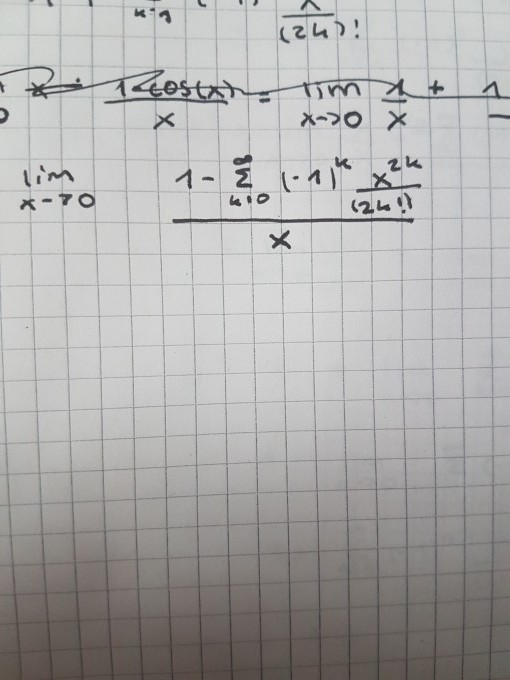 k=1 (2k)!
1-cos(x) / x = lim x->0 1/x + 1
lim x->0 (1 - ∞ Σ k=0 (-1)^k x^2k / (2k!)) / x